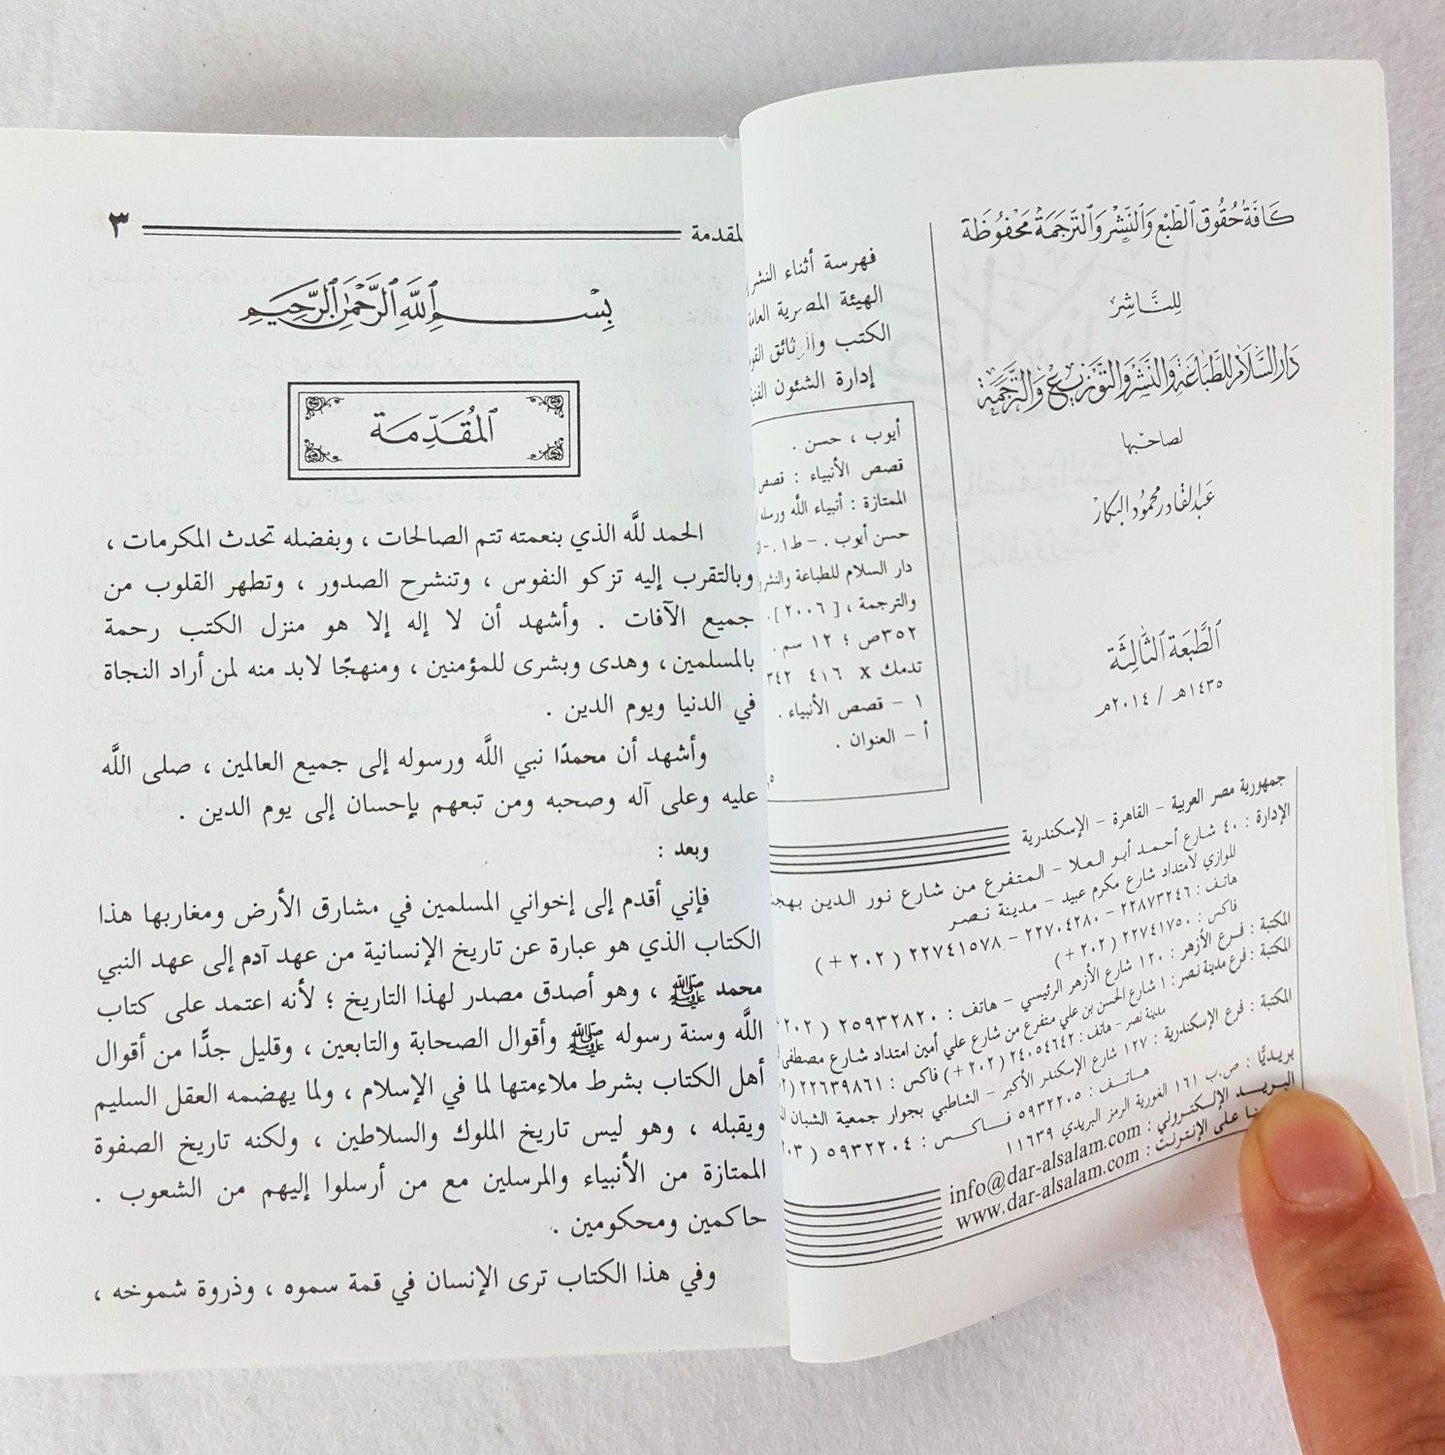 كَافَّةُ حُقُوقِ الطَّبْعِ وَالنَّشْرِ وَالتَّرْجَمَةِ مَحْفُوظَة
لِلنَّاشِر
دَارُ السَّلَامِ لِلطِّبَاعَةِ وَالنَّشْرِ وَالتَّوْزِيعِ وَالتَّرْجَمَةِ
لصاحبها
عبدالقادر محمود البكار
الطَّبْعَة الثَّالِثَة
١٤٣٥هـ / ٢٠١٤م
فهرسة أثناء النشر
الهيئة المصرية العامة
الكتب والوثائق
إدارة الشئون
أيوب ، حسن .
قصص الأنبياء : قصص
الممتازة : أنبياء الله ورسله
حسن أيوب . - ط١ . -
دار السلام للطباعة والنشر
والترجمة ، [ ٢٠٠٦ ] .
٣٥٢ص ؛ ١٢ سم .
تدمك X ٤١٦ ٣٤٢
١ - قصص الأنبياء .
أ - العنوان .
جمهورية مصر العربية - القاهرة - الإسكندرية
الإدارة : ٤٠ شارع أحمد أبو العلا - المتفرع من شارع نور الدين
الموازي لامتداد شارع مكرم عبيد - مدينة نصر
هاتف : ٢٢٨٧٣٢٤٦ - ٢٢٧٠٤٢٨٠ - ٢٢٧٤١٥٧٨ ( ٢٠٢ + )
فاكس : ٢٢٧٤١٧٥٠ ( ٢٠٢ + )
المكتبة : فرع الأزهر : ١٢٠ شارع الأزهر الرئيسي - هاتف : ٢٥٩٣٢٨٢٠ ( ٢٠٢
المكتبة : فرع مدينة نصر : ١ شارع الحسن بن علي متفرع من شارع علي أمين امتداد شارع مصطفى
مدينة نصر - هاتف : ٢٤٠٥٤٦٤٢ ( ٢٠٢ + ) فاكس : ٢٢٦٣٩٨٦١
المكتبة : فرع الإسكندرية : ١٢٧ شارع الإسكندر الأكبر - الشاطبي بجوار جمعية الشبان
هاتف : ٥٩٣٢٢٠٥ فاكس : ٥٩٣٢٢٠٤ ( ٢٠٣
بريديًّا : ص.ب ١٦١ الغورية الرمز البريدي ١١٦٣٩
البريد الإلكتروني : info@dar-alsalam.com
على الإنترنت : www.dar-alsalam.com
المقدمة ٣
بِسْمِ اللهِ الرَّحْمَنِ الرَّحِيمِ
المُقَدِّمَة
الحمد للَّه الذي بنعمته تتم الصالحات ، وبفضله تحدث المكرمات ،
وبالتقرب إليه تزكو النفوس ، وتنشرح الصدور ، وتطهر القلوب من
جميع الآفات . وأشهد أن لا إله إلا هو منزل الكتب رحمة
بالمسلمين ، وهدى وبشرى للمؤمنين ، ومنهجًا لابد منه لمن أراد النجاة
في الدنيا ويوم الدين .
وأشهد أن محمدًا نبي اللَّه ورسوله إلى جميع العالمين ، صلى اللَّه
عليه وعلى آله وصحبه ومن تبعهم بإحسان إلى يوم الدين .
وبعد :
فإني أقدم إلى إخواني المسلمين في مشارق الأرض ومغاربها هذا
الكتاب الذي هو عبارة عن تاريخ الإنسانية من عهد آدم إلى عهد النبي
محمد ﷺ ، وهو أصدق مصدر لهذا التاريخ ؛ لأنه اعتمد على كتاب
اللَّه وسنة رسوله ﷺ وأقوال الصحابة والتابعين ، وقليل جدًّا من أقوال
أهل الكتاب بشرط ملاءمتها لما في الإسلام ، ولما يهضمه العقل السليم
ويقبله ، وهو ليس تاريخ الملوك والسلاطين ، ولكنه تاريخ الصفوة
الممتازة من الأنبياء والمرسلين مع من أرسلوا إليهم من الشعوب .
حاكمين ومحكومين .
وفي هذا الكتاب ترى الإنسان في قمة سموه ، وذروة شموخه ،